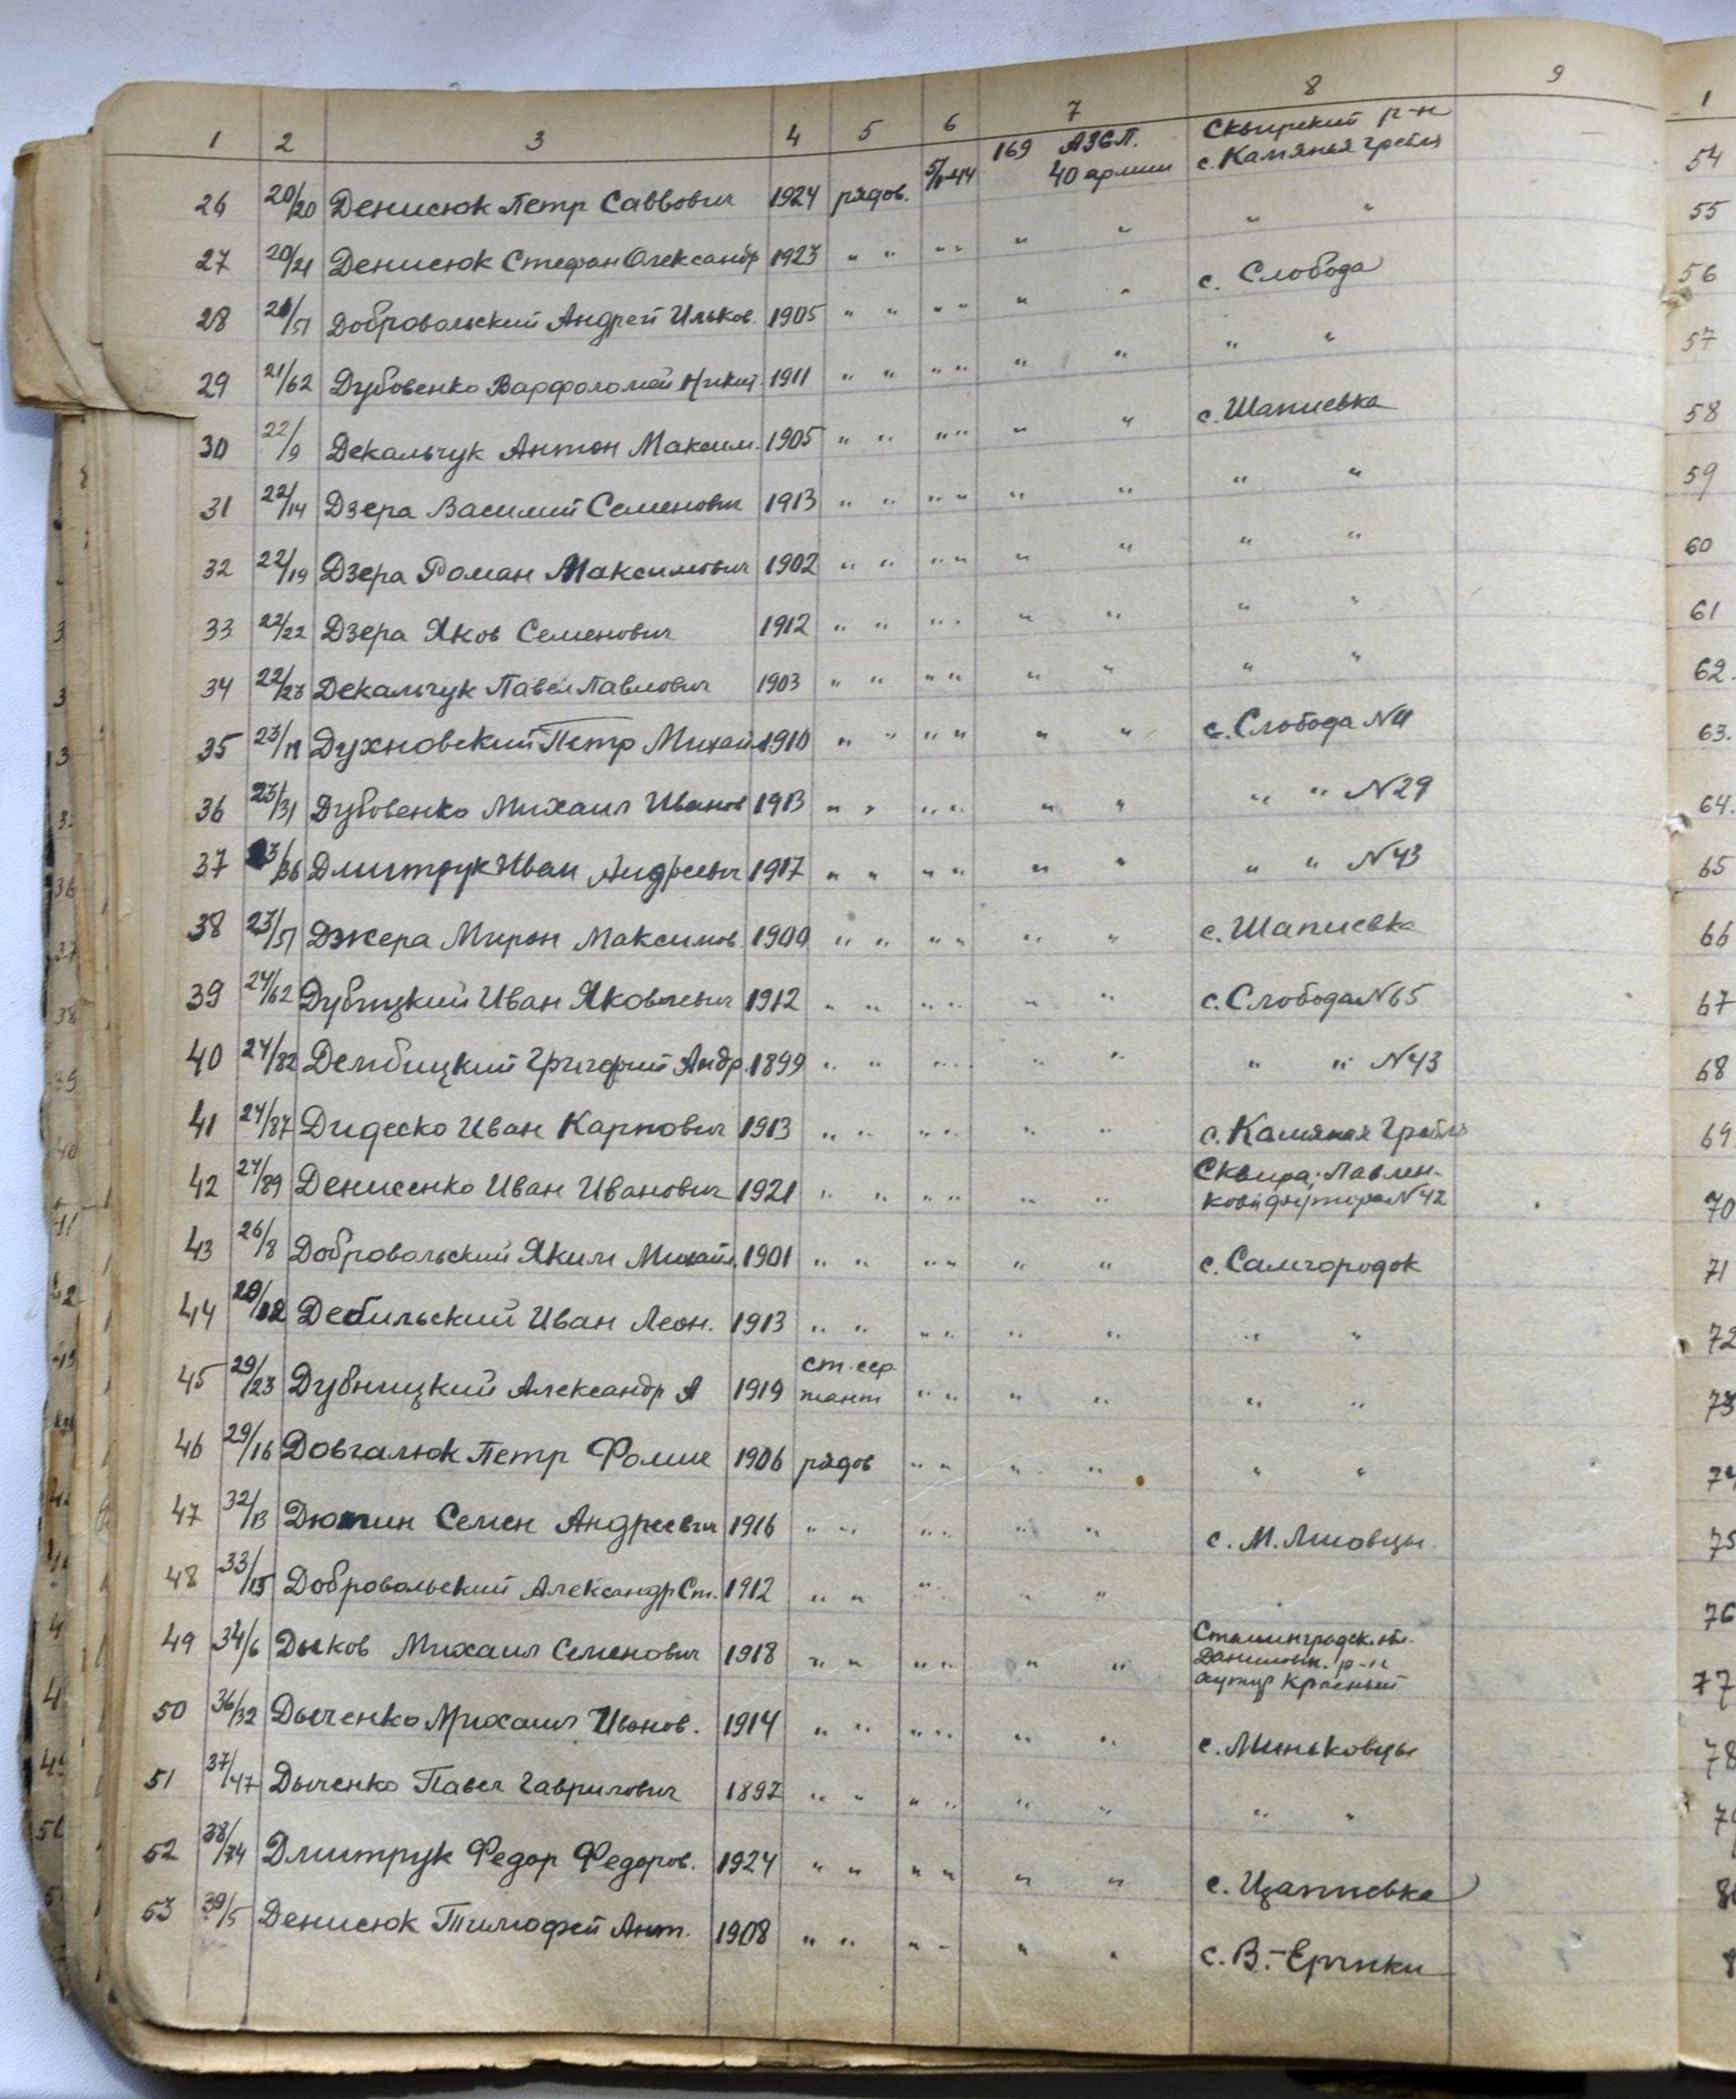 1 2 3 4 5 6 7 8 9
26 20/20 Денисюк Петр Саввович 1924 рядов. 5/I-44 169 АЗСП. 40 армии Сквирский р-н с. Камяная гребля
27 20/21 Денисюк Стефан Олександр 1923 " " " " " " " "
28 21/51 Добровольский Андрей Ильков. 1905 " " " " " " с. Слобода
29 21/62 Дубовенко Варфоломей Никит. 1911 " " " " " " " "
30 22/9 Декальчук Антон Максим. 1905 " " " " " " с. Шапиевка
31 22/14 Дзера Василий Семенович 1913 " " " " " " " "
32 22/19 Дзера Роман Максимович 1902 " " " " " " " "
33 22/22 Дзера Яков Семенович 1912 " " " " " " " "
34 22/28 Декальчук Павел Павлович 1903 " " " " " " " "
35 23/11 Духновский Петр Михай 1910 " " " " " " с. Слобода N11
36 23/31 Дубовенко Михаил Иванов 1913 " " " " " " " " N29
37 23/36 Дмитрук Иван Андреевич 1917 " " " " " " " " N43
38 23/51 Джера Мирон Максимов. 1909 " " " " " " с. Шапиевка
39 24/62 Дубицкий Иван Яковлевич 1912 " " " " " " с. Слобода N65
40 24/82 Дембицкий Григорий Андр. 1899 " " " " " " " " N43
41 24/87 Дидеско Иван Карпович 1913 " " " " " " с. Камяная Гребля
42 24/89 Денисенко Иван Иванович 1921 " " " " " " Сквира, Павлен-
кови хутора N42
43 26/8 Добровольский Яким Михайл. 1901 " " " " " " с. Самгородок
44 28/12 Дебильский Иван Леон. 1913 " " " " " " " "
45 29/23 Дубницкий Александр А 1919 ст. сер-
жант " " " " " "
46 29/16 Довгалюк Петр Фомич 1906 рядов " " " " " "
47 32/13 Дютин Семен Андреевич 1916 " " " " " " с. М. Лисовцы.
48 33/15 Добровольский Александр Ст. 1912 " " " " " "
49 34/6 Дыков Михаил Семенович 1918 " " " " " " Сталинградск. обл.
Даниловск. р-н
хутор Красный
50 36/32 Дыченко Михаил Иванов. 1914 " " " " " " с. Миньковцы
51 37/47 Дыченко Павел Гаврилович 1897 " " " " " " " "
52 38/74 Дмитрук Федор Федоров. 1924 " " " " " " с. Шапиевка
53 39/5 Денисюк Тимофей Ант. 1908 " " " " " " с. В.-Ерчики
1
54
55
56
57
58
59
60
61
62.
63.
64.
65
66
67
68
69
70
71
72
73
74
75
76
77
78